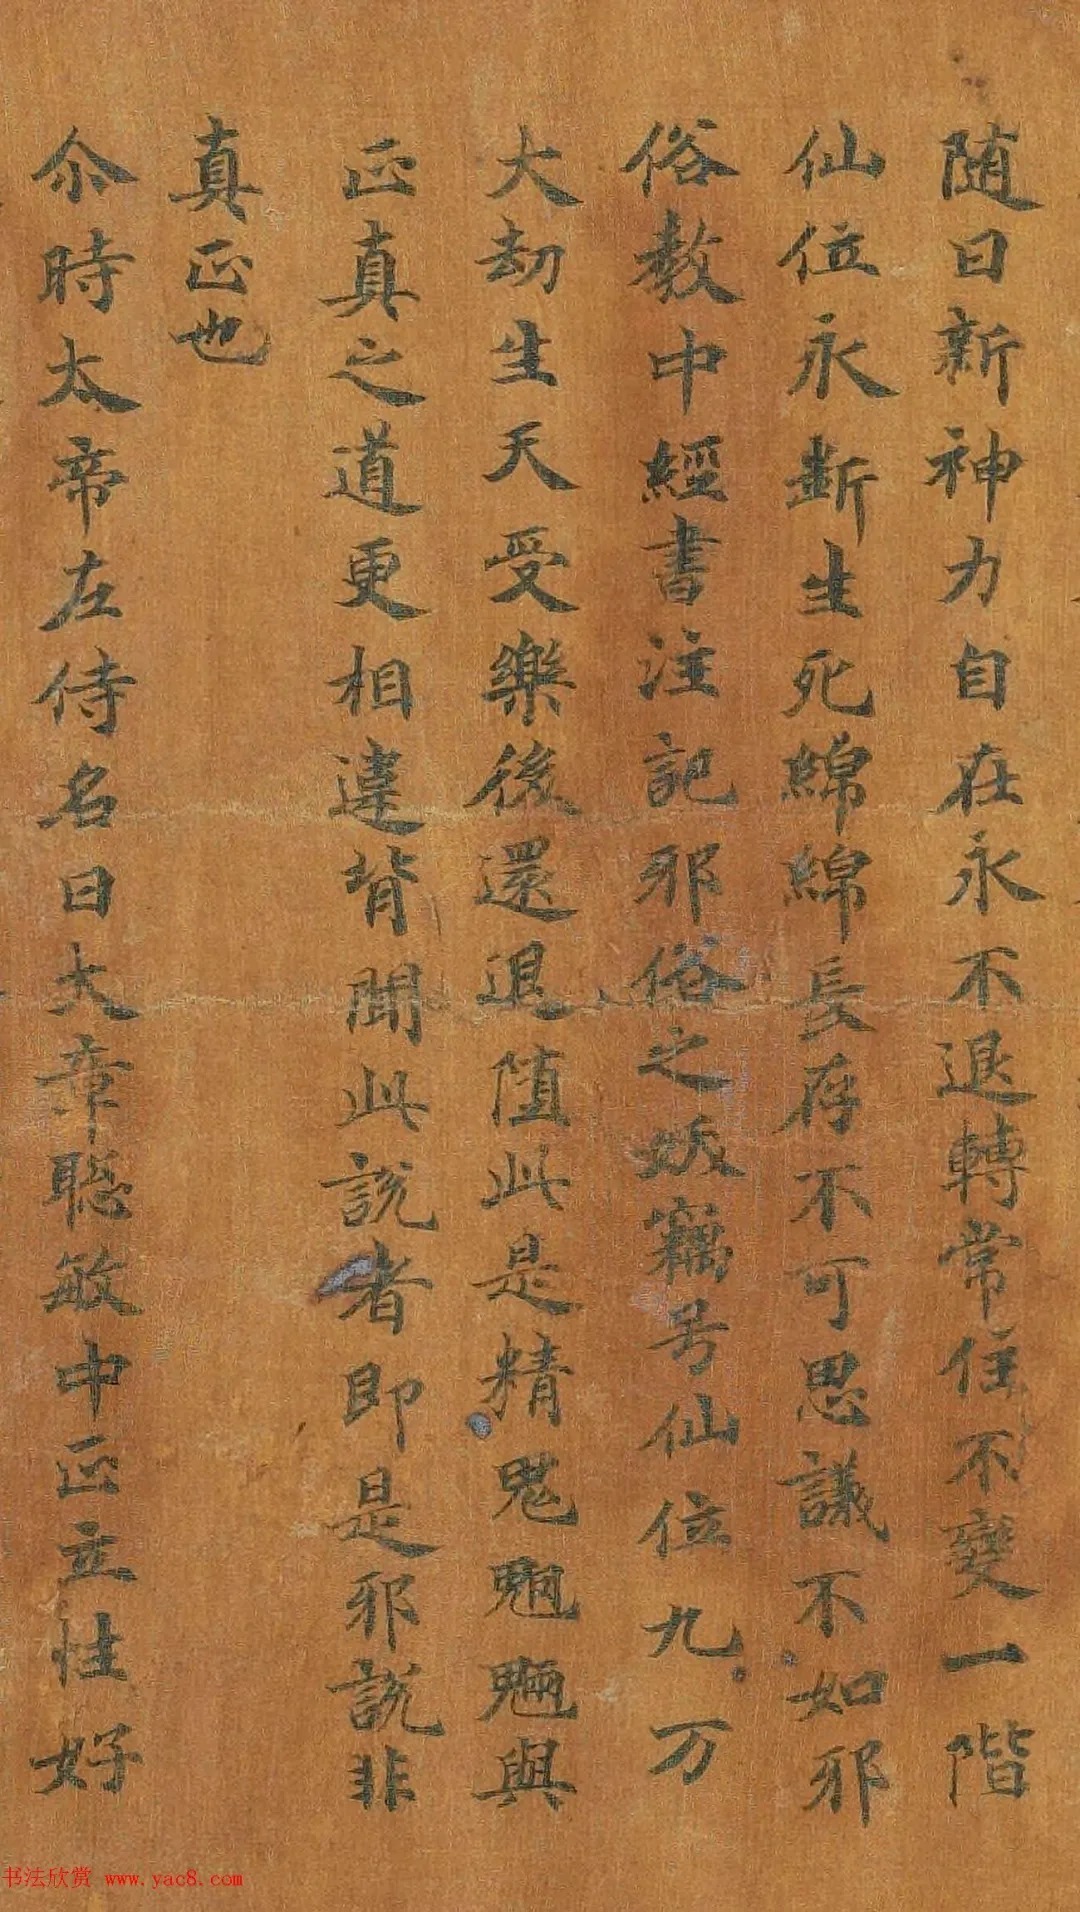 随日新神力自在永不退轉常住不變一階
仙位永斷生死綿綿長存不可思議不如邪
俗教中經書注記邪俗之妖竊号仙位九万
大劫生天受樂後還退墮此是精鬼魍魎與
正真之道更相違背聞此說者即是邪說非
真正也
尒時太帝左侍名曰大章聰敏中正立性好
书法欣赏 www.yac8.com